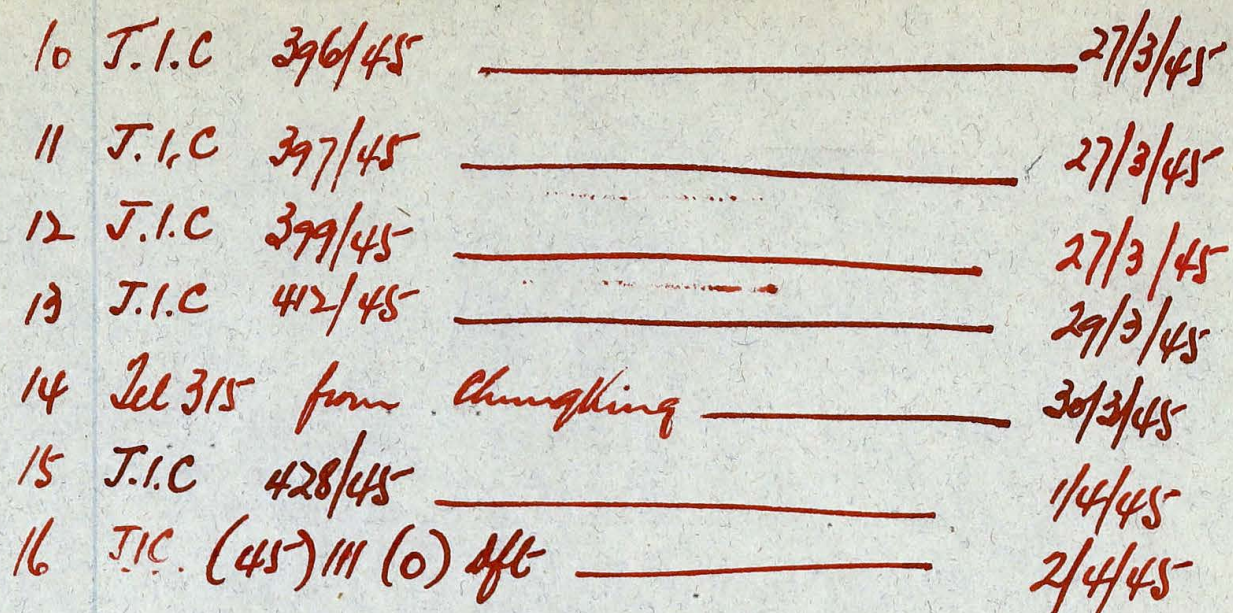 10 J.I.C 396/45 27/3/45
11 J.I.C 397/45 27/3/45
12 J.I.C 399/45 27/3/45
13 J.I.C 412/45 29/3/45
14 Tel 315 from Chungking 30/3/45
15 J.I.C 428/45 1/4/45
16 J.I.C. (45) 111 (0) dft 2/4/45